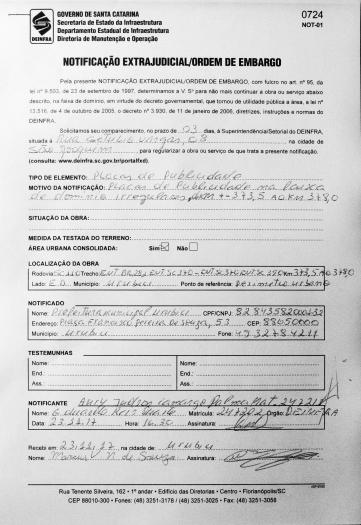 GOVERNO DE SANTA CATARINA
Secretaria de Estado da Infraestrutura
Departamento Estadual de Infraestrutura
Diretoria de Manutenção e Operação
DEINFRA
0724
NOT-01
NOTIFICAÇÃO EXTRAJUDICIAL/ORDEM DE EMBARGO
Pela presente NOTIFICAÇÃO EXTRAJUDICIAL/ORDEM DE EMBARGO, com fulcro no art. nº 95, da
lei nº 9.503, de 23 de setembro de 1997, determinamos a V. Sª para não mais continuar a obra ou serviço abaixo
descrito, na faixa de domínio, em virtude do decreto governamental, que tornou de utilidade pública a área, a lei nº
13.516, de 4 de outubro de 2005, o decreto nº 3.930, de 11 de janeiro de 2006, diretrizes, instruções e normas do
DEINFRA.
Solicitamos seu comparecimento, no prazo de 03 dias, à Superintência/Setorial do DEINFRA,
situada à Rua Getulio Vargas, 08 na cidade de
São Joaquim para regularizar a obra ou serviço de que trata a presente notificação.
(consulte: www.deinfra.sc.gov.br/portalfxd).
TIPO DE ELEMENTO: Placas de Publicidade
MOTIVO DA NOTIFICAÇÃO: Placas de Publicidade na faixa
de dominio irregulares, KM 373,5 AO KM 378,0
SITUAÇÃO DA OBRA:
MEDIDA DA TESTADA DO TERRENO:
ÁREA URBANA CONSOLIDADA: Sim Não
LOCALIZAÇÃO DA OBRA
Rodovia: Trecho: Km 373,5 AO 378,0
Lado: E.D. Município: Urubici Ponto de referência: Perimetro urbano
NOTIFICADO
Nome: Prefeitura municipal Urubici CPF/CNPJ: 82843582000132
Endereço: Praça Francisco Pereira de Souza, 53 CEP: 88650000
Município: Urubici Fone: 4932784211
TESTEMUNHAS
Nome: Nome:
End.: End.:
Ass.: Ass.:
NOTIFICANTE
Nome: Matrícula: Órgão: DEINFRA
Data Hora 16.30 Assinatura:
Recebi em na cidade de Urubici
Nome: de Souza Assinatura:
Rua Tenente Silveira, 162 • 1º andar • Edifício das Diretorias • Centro • Florianópolis/SC
CEP 88010-300 • Fones: (48) 3251-3178 / (48) 3251-3025 • Fax: (48) 3251-3058